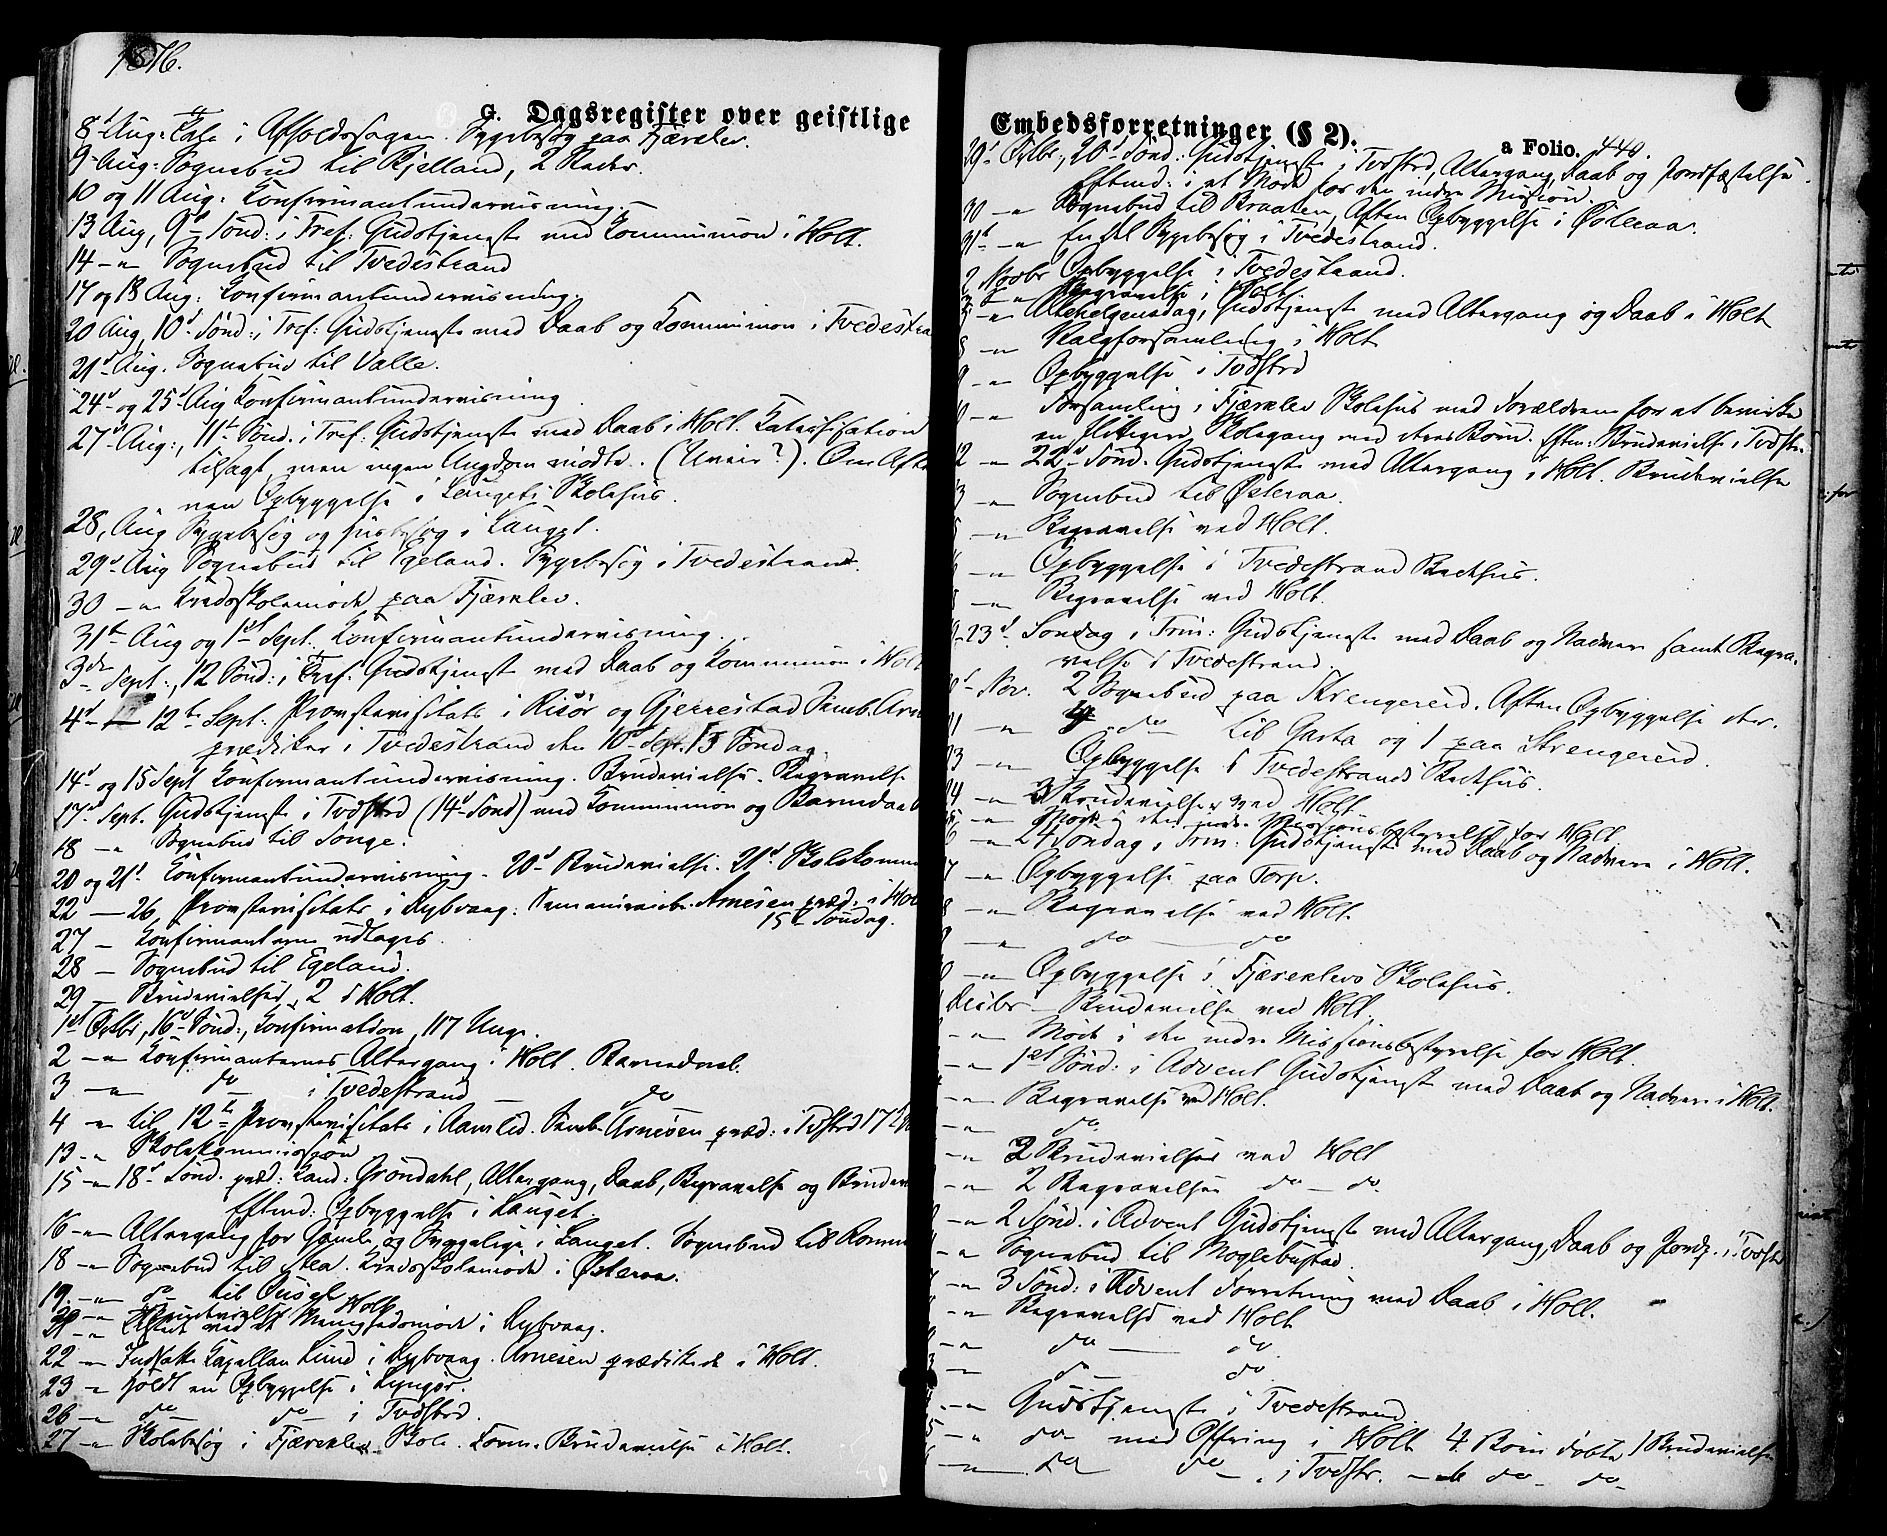 1876.
G. Dagsregister over geistlige
8d Aug: i Afholdssagen. Sygebesøg paa Fjæreklev.
9 Aug: Sognebud til Kjelland, 2 Steder.
10 og 11 Aug: Konfirmantundervisning.
13 Aug, 9d Sönd: i Tref: Gudstjeneste med Kommunion i Holt.
14 - " Sognebud til Tvedestrand
17 og 18 Aug: Konfirmantundervisning.
20 Aug, 10d Sönd: i Tref: Gudstjeneste med Daab og Kommunion i Tvedestra
21d Aug. Sognebud til Valle.
24d og 25d Aug Konfirmantundervisning
27d Aug:, 11t Sönd. i Tref. Gudstjeneste med Daab i Holt. Katechisation
tilsagt, men ingen Ungdom mødte. (Uveir?). Om Afte
nen Opbyggelse i Lauget Skolehus.
28, Aug Sygebesøg og Husbesøg i Lauget.
29d Aug Sognebud til Egeland. Sygebesøg i Tvedestrand.
30 - " Kredsskolemøde paa Fjæreklev.
31te Aug og 1st Sept. Konfirmantundervisning.
3die Sept., 12 Sönd: i Tref: Gudstjeneste med Daab og Kommunion i Holt
4d - 12te Sept: Provstevisitats i Risör og Gjerrestad Semb. Arne
prædiker i Tvedestrand den 10d Sept. 13 Söndag.
14d og 15 Sept Konfirmantundervisning. Brudevielse. Begravelse
17d Sept. Gudstjeneste i Tvdstrd (14d Sönd) med Kommunion og Barnedaab
18 - " Sognebud til Songe.
20 og 21d Konfirmantundervisning. 20d Brudevielse. 21d Skolekomm
22 — 26, Provstevisitats i Dybvaag: Arnesen præd. i Hol
15d Söndag.
27 - Konfirmanterne udtages.
28 - Sognebud til Egeland.
29 - Brudevielser, 2 i Holt.
1st Octbr, 16d Sönd:, Konfirmation, 117 Unge.
2 - " Konfirmanternes Altergang i Holt. Barnedaab.
3 - " do i Tvedestrand do
4 - " til 12te Provstevisitats i Aamlid. Semb. Arnesen præd: i Tvdstrd 17d
13 - " Skolekommission
15 - " 18d Sönd. præd: Kand: Gröndahl, Altergang, Daab, Begravelse og Brudev
Eftmd: Opbyggelse i Lauget.
16 - " Altergang for Gamle og Sygelige i Lauget. Sognebud til
18 - " Sognebud til Stea. Kredsskolemøde i Østeraa.
19. - " do til
Brudevielse Holt
21 - " ved et Menighedsmøde i Dybvaag.
22 - " Indsatte Kapellan Lund i Dybvaag. Arnesen prædikede i Holt.
23 - " Holdt en Opbyggelse i Lyngör.
26 - " do do i Tvdstrd.
27 - " Skolebesøg i Fjæreklev Skole. Brudevielse i Holt.
Embedsforretninger (§ 2).
a Folio. 440.
29d Octbr, 20d Sönd: Gudstjeneste i Tvdstrd, Altergang, Daab og Jordfæstelse.
Eftmd: i et Møde for den indre Mission.
30 - " Sognebud til Braaten, Aften Opbyggelse i Østeraa.
31d - " En del Sygebesøg i Tvedestrand.
2 Novbr Opbyggelse i Tvedestrand.
- " Begravelse i Holt
5 - " Allehelgensdag, Gudstjeneste med Altergang og Daab i Holt
8 - " Valgforsamling i Holt
9 - " Opbyggelse i Tvdstrd
- " Forsamling i Fjæreklev Skolehus med Forældrene for at bevirke
en flittigere Skolegang med deres Børn. Eftm: Brudevielse i Tvdstr.
12 - " 22d Sönd. Gudstjeneste med Altergang i Holt. Brudevielse
13 - " Sognebud til Østeraa.
5 - " Begravelse ved Holt.
6 - " Opbyggelse i Tvedestrand Bedehus.
- " Begravelse ved Holt.
9 - 23d Söndag i Trin: Gudstjeneste med Daab og Nadver samt Begra-
velse i Tvedestrand.
Nov. 2 Sognebud paa Strengereid. Aften Opbyggelse der.
21 - " do til Garta og 1 paa Strengereid.
23 - " Opbyggelse i Tvedestrands Bedehus.
24 - " 3 Brudevielser ved Holt
25 - " Møde i den indre Missionsbestyrelse for Holt
26 - " 24 Söndag i Trin: Gudstjeneste med Daab og Nadver i Holt.
7 - " Opbyggelse paa Torp.
8 - " Begravelse ved Holt.
- " do — do
0 - " Opbyggelse i Fjæreklevs Skolehus.
Decbr - Brudevielse ved Holt.
- " Møde i den indre Missionsbestyrelse for Holt.
- " 1st Sönd: i Advent Gudstjeneste med Daab og Nadver i Holt.
- " Begravelse ved Holt.
- " do
- " 2 Brudevielser ved Holt
- " 2 Begravelser do - do.
- " 2 Sönd. i Advent Gudstjeneste med Altergang, Daab og Jordf. i Tvdstr
- " Sognebud til Moglebustad.
- " 3 Sönd: i Advent Forretning med Daab i Holt.
- " Begravelse ved Holt
- " do — do.
- " do — do
- " Gudstjeneste i Tvedestrand
5 - " do med Offring i Holt 4 Børn døbte 1 Brudevielse
6 - " do do - i Tvdstr. - do - do -